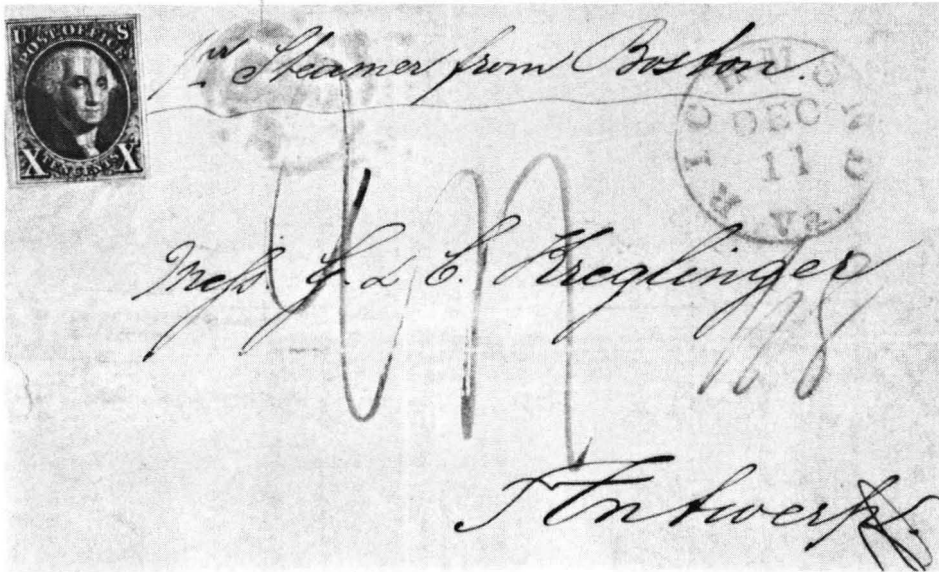 U S
POST OFFICE
X TEN CENTS X
Pr Steamer from Boston.
RICHMOND Va.
DEC
11
Messs. G. & C. Kreglinger
Antwerp.